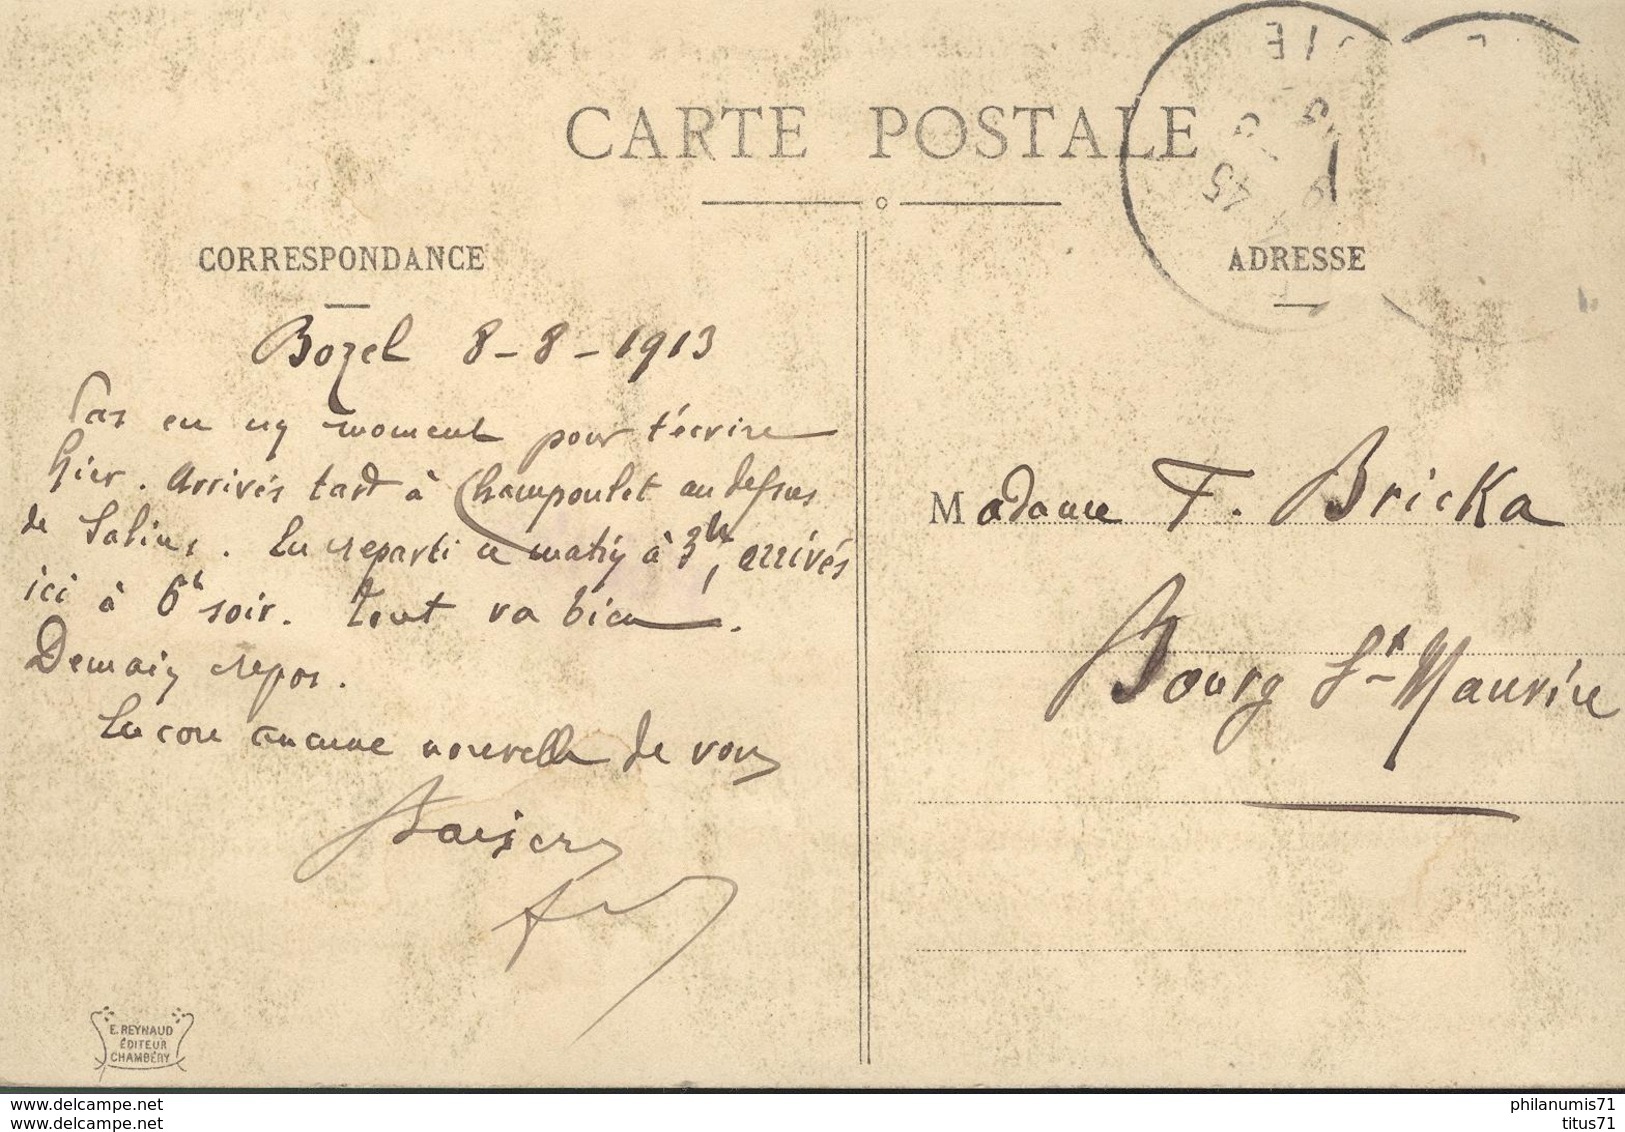 CARTE POSTALE
CORRESPONDANCE
Bozel 8-8-1913
Pas eu un moment pour t'écrire
hier. Arrivés tard à Champoulet au dessus
de Salins. reparti ce matin à 3h, arrivés
ici à 6h soir. Tout va bien.
Demain repos.
Encore aucune nouvelle de vous
Baisers
E. REYNAUD
ÉDITEUR
CHAMBÉRY
ADRESSE
Madame F. Bricka
Bourg St-Maurice
www.delcampe.net
www.delcampe.net
philanumis71
titus71